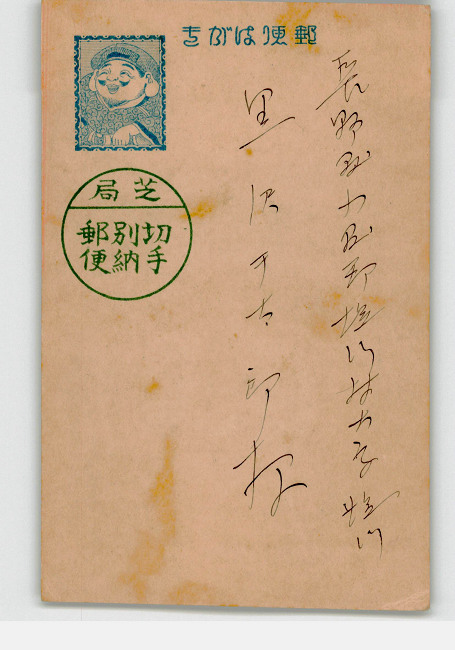 郵便はがき
芝局
切手
別納
郵便
長野県小県郡塩川村大字塩川
黒沢千太郎様